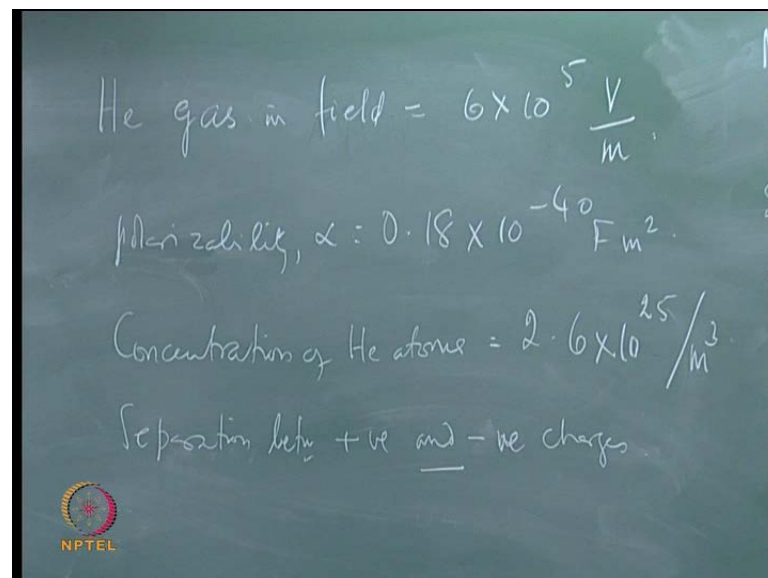 He gas in field = 6 × 10^5 V/m.
polarizability, α = 0.18 × 10^-40 F m^2.
Concentration of He atoms = 2.6 × 10^25 / m^3.
Separation betn +ve and -ve charges
NPTEL